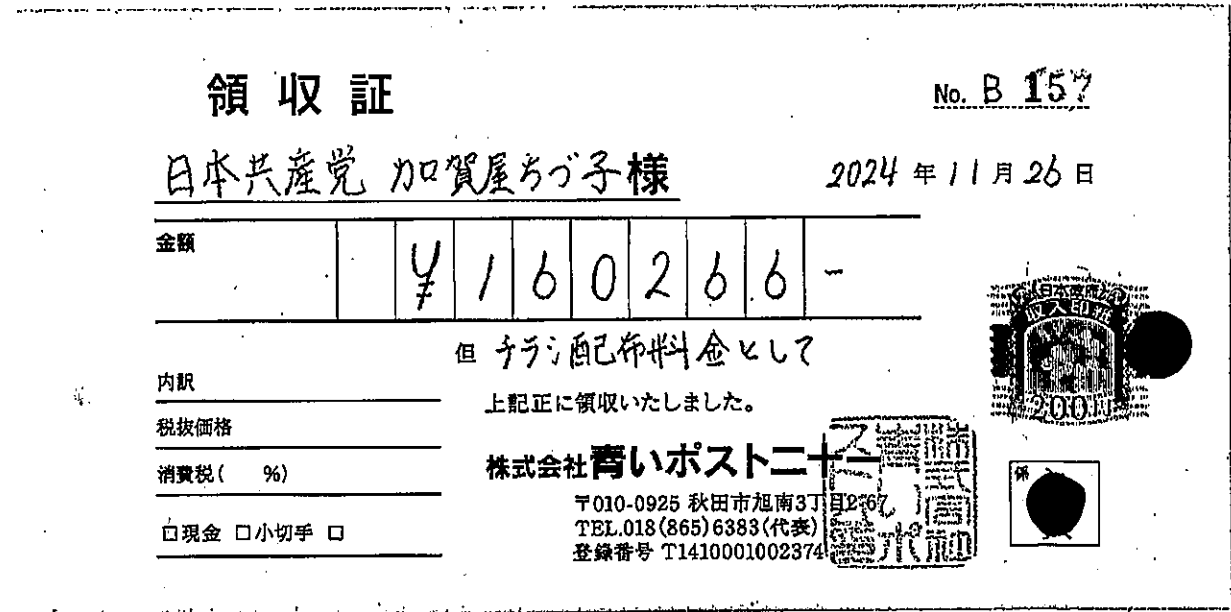 領収証
No. B 157
日本共産党 加賀屋ちづ子様
2024年11月26日
金額 ¥160266-
但 チラシ配布料金として
上記正に領収いたしました。
内訳
税抜価格
消費税( %)
□現金 □小切手 □
株式会社青いポスト二十一
〒010-0925 秋田市旭南3丁目2-67
TEL.018(865)6383(代表)
登録番号 T1410001002374
日本政府
収入印紙
200円
係